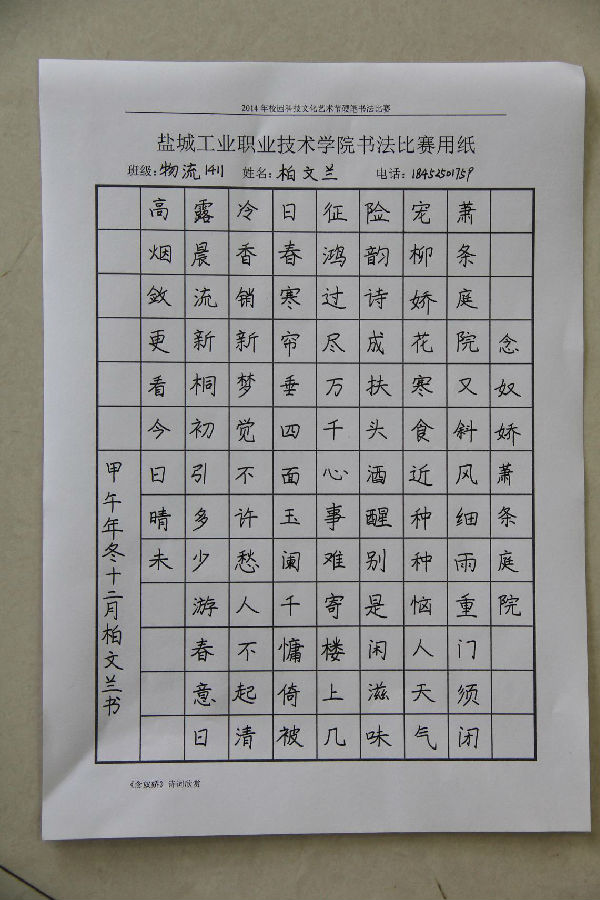 2014年校园科技文化艺术节硬笔书法比赛
盐城工业职业技术学院书法比赛用纸
班级:物流1411 姓名:柏文兰 电话:18452501759
念奴娇萧条庭院
萧条庭院又斜风细雨重门须闭
宠柳娇花寒食近种种恼人天气
险韵诗成扶头酒醒别是闲滋味
征鸿过尽万千心事难寄楼上几
日春寒帘垂四面玉阑干慵倚被
冷香销新梦觉不许愁人不起清
露晨流新桐初引多少游春意日
高烟敛更看今日晴未
甲午年冬十二月柏文兰书
《念奴娇》诗词欣赏